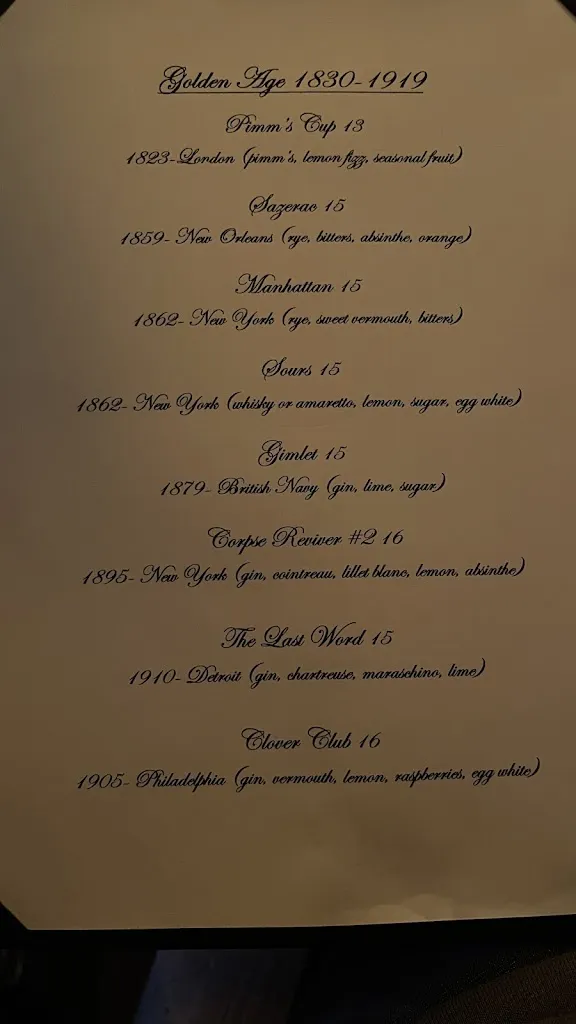 Golden Age 1830-1919
Pimm's Cup 13
1823-London (pimm's, lemon fizz, seasonal fruit)
Sazerac 15
1859- New Orleans (rye, bitters, absinthe, orange)
Manhattan 15
1862- New York (rye, sweet vermouth, bitters)
Sours 15
1862- New York (whisky or amaretto, lemon, sugar, egg white)
Gimlet 15
1879- British Navy (gin, lime, sugar)
Corpse Reviver #2 16
1895- New York (gin, cointreau, lillet blanc, lemon, absinthe)
The Last Word 15
1910- Detroit (gin, chartreuse, maraschino, lime)
Clover Club 16
1905- Philadelphia (gin, vermouth, lemon, raspberries, egg white)